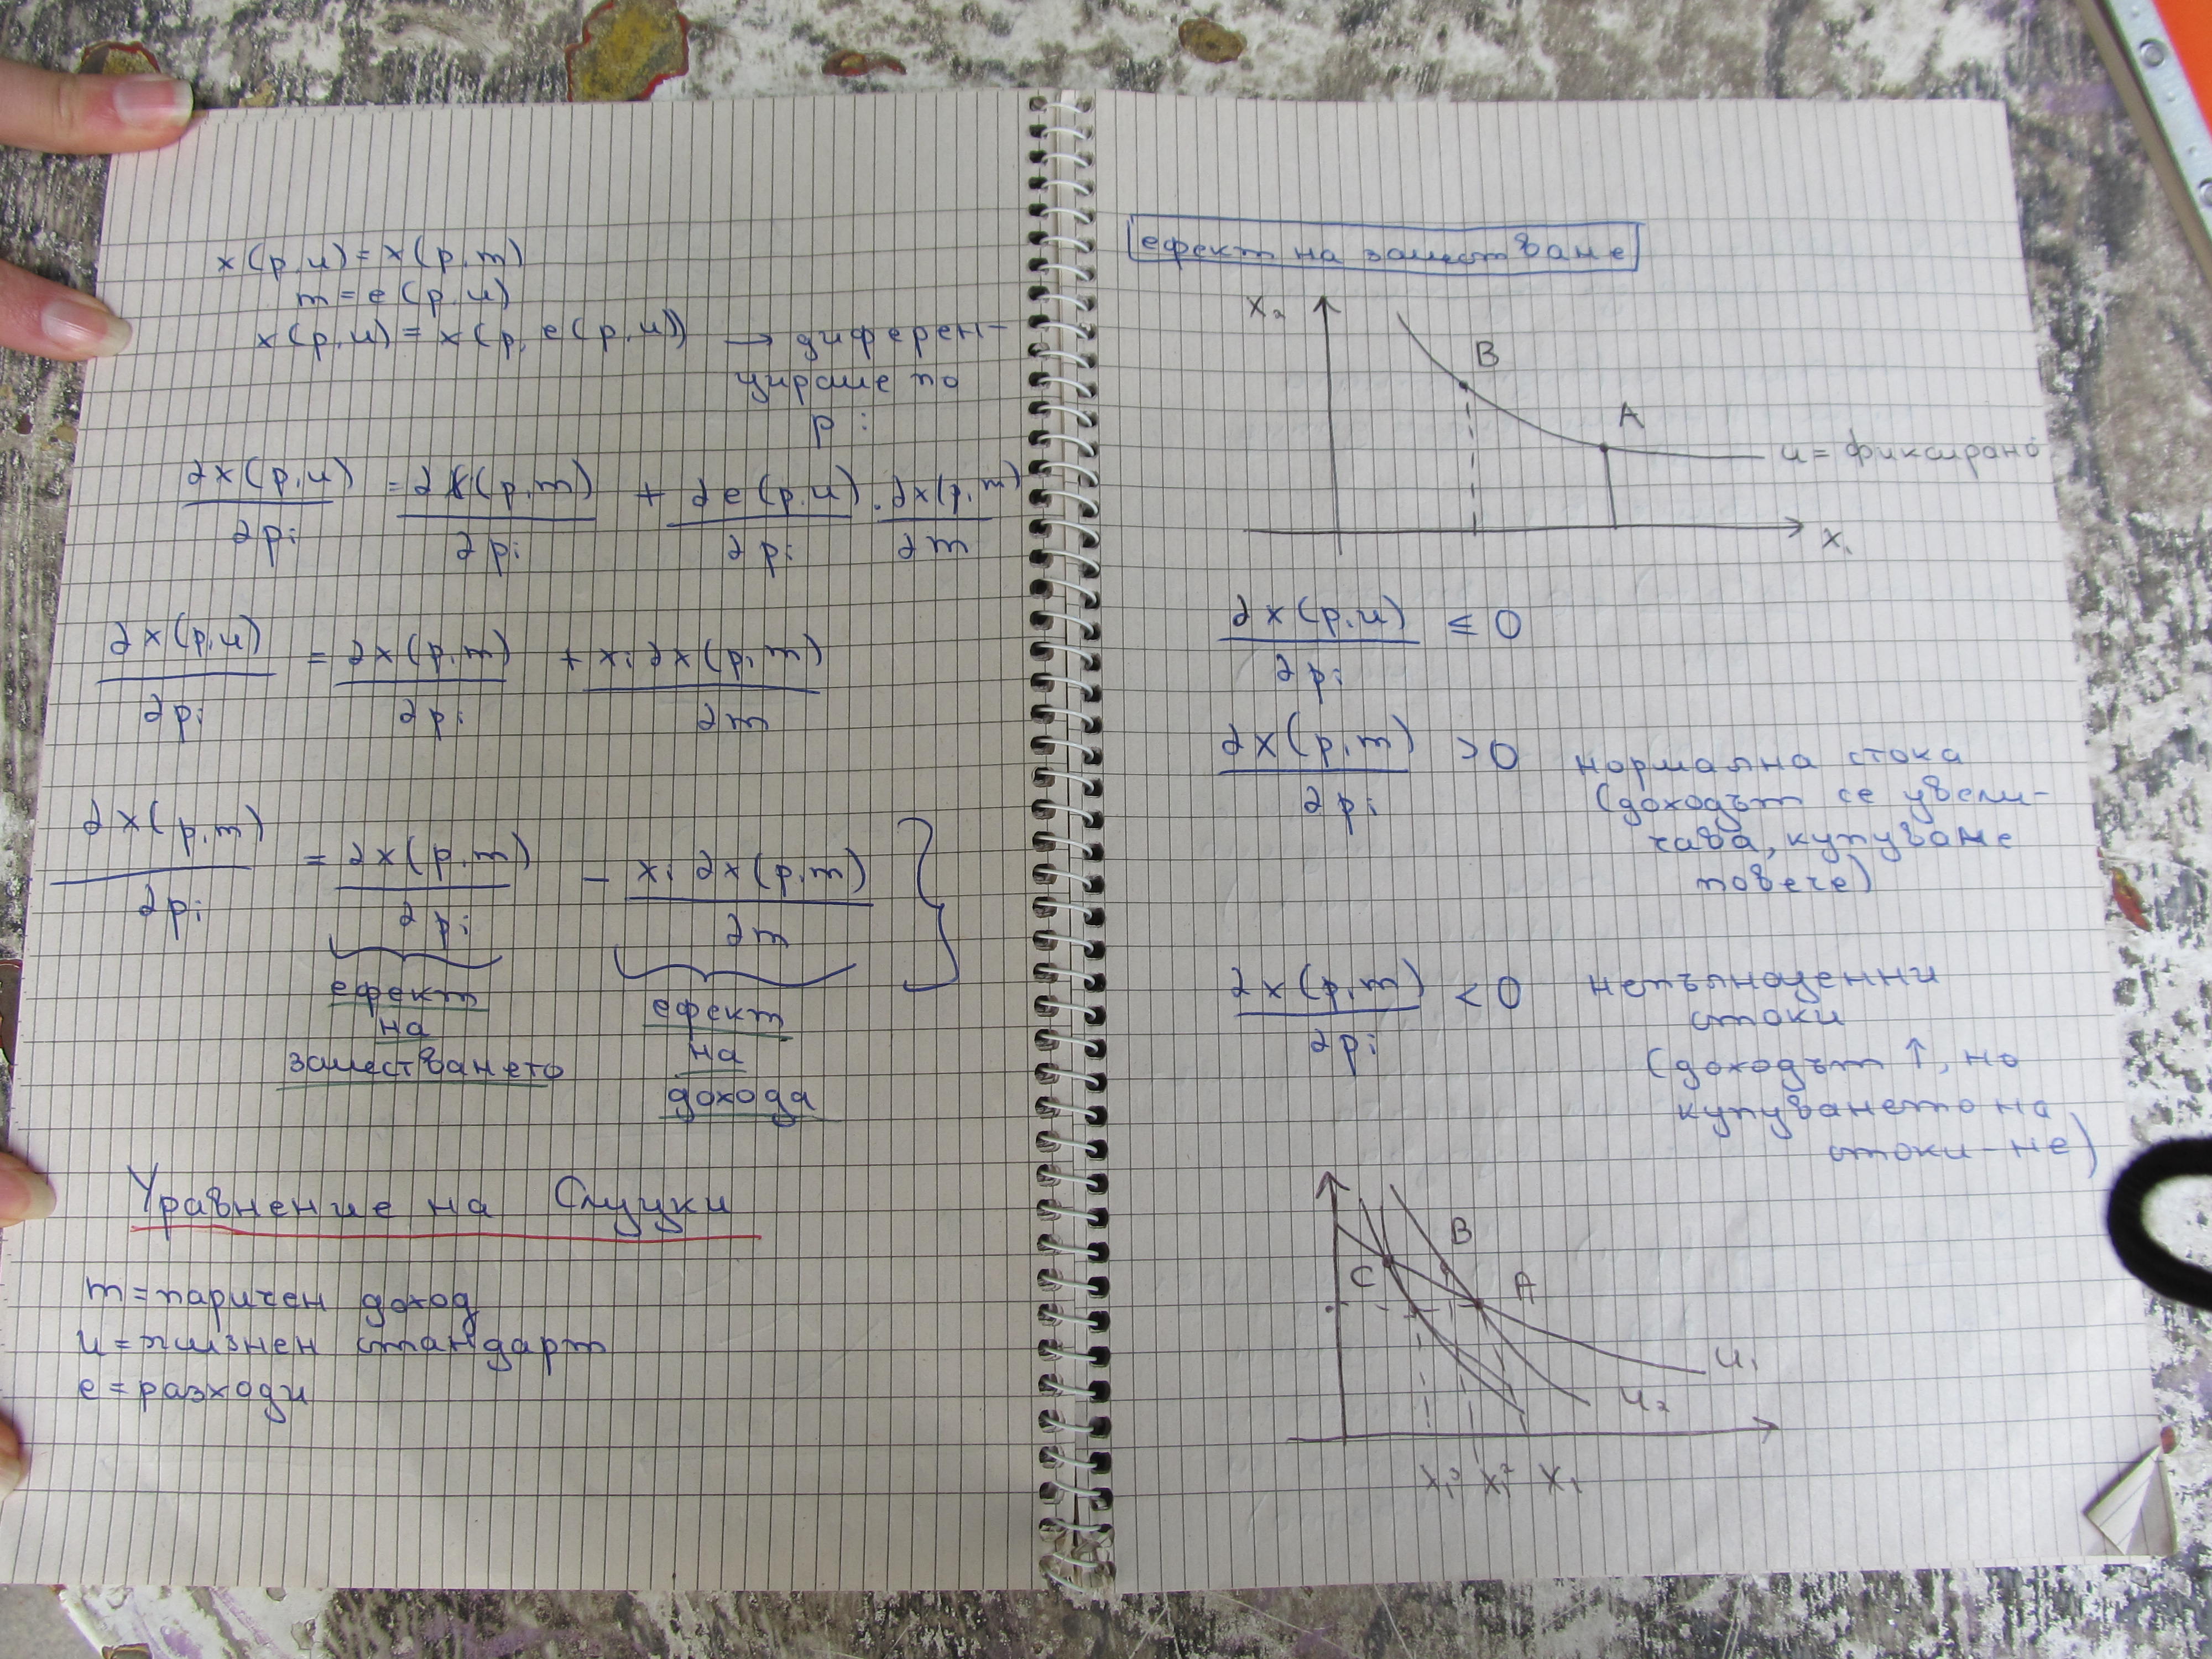 x(p,u)=x(p,m)
m=e(p,u)
x(p,u)=x(p,e(p,u)) → диферен-
циране по
pᵢ
∂x(p,u)/∂pᵢ = ∂x(p,m)/∂pᵢ + ∂e(p,u)/∂pᵢ . ∂x(p,m)/∂m
∂x(p,u)/∂pᵢ = ∂x(p,m)/∂pᵢ + xᵢ ∂x(p,m)/∂m
∂x(p,m)/∂pᵢ = ∂x(p,m)/∂pᵢ − xᵢ ∂x(p,m)/∂m }
ефект
на
заместването
ефект
на
дохода
Уравнение на Слуцки
m=паричен доход
u=жизнен стандарт
e=разходи
ефект на заместване
x₂
B
A
u=фиксирано
x₁
∂x(p,u)/∂pᵢ ≤ 0
∂x(p,m)/∂pᵢ >0 нормална стока
(доходът се увели-
чава, купуваме
повече)
∂x(p,m)/∂pᵢ <0 непълноценни
стоки
(доходът ↑, но
купуването на
стоки-не)
B
C A
u₁
u₂
x₁³ x₁² x₁